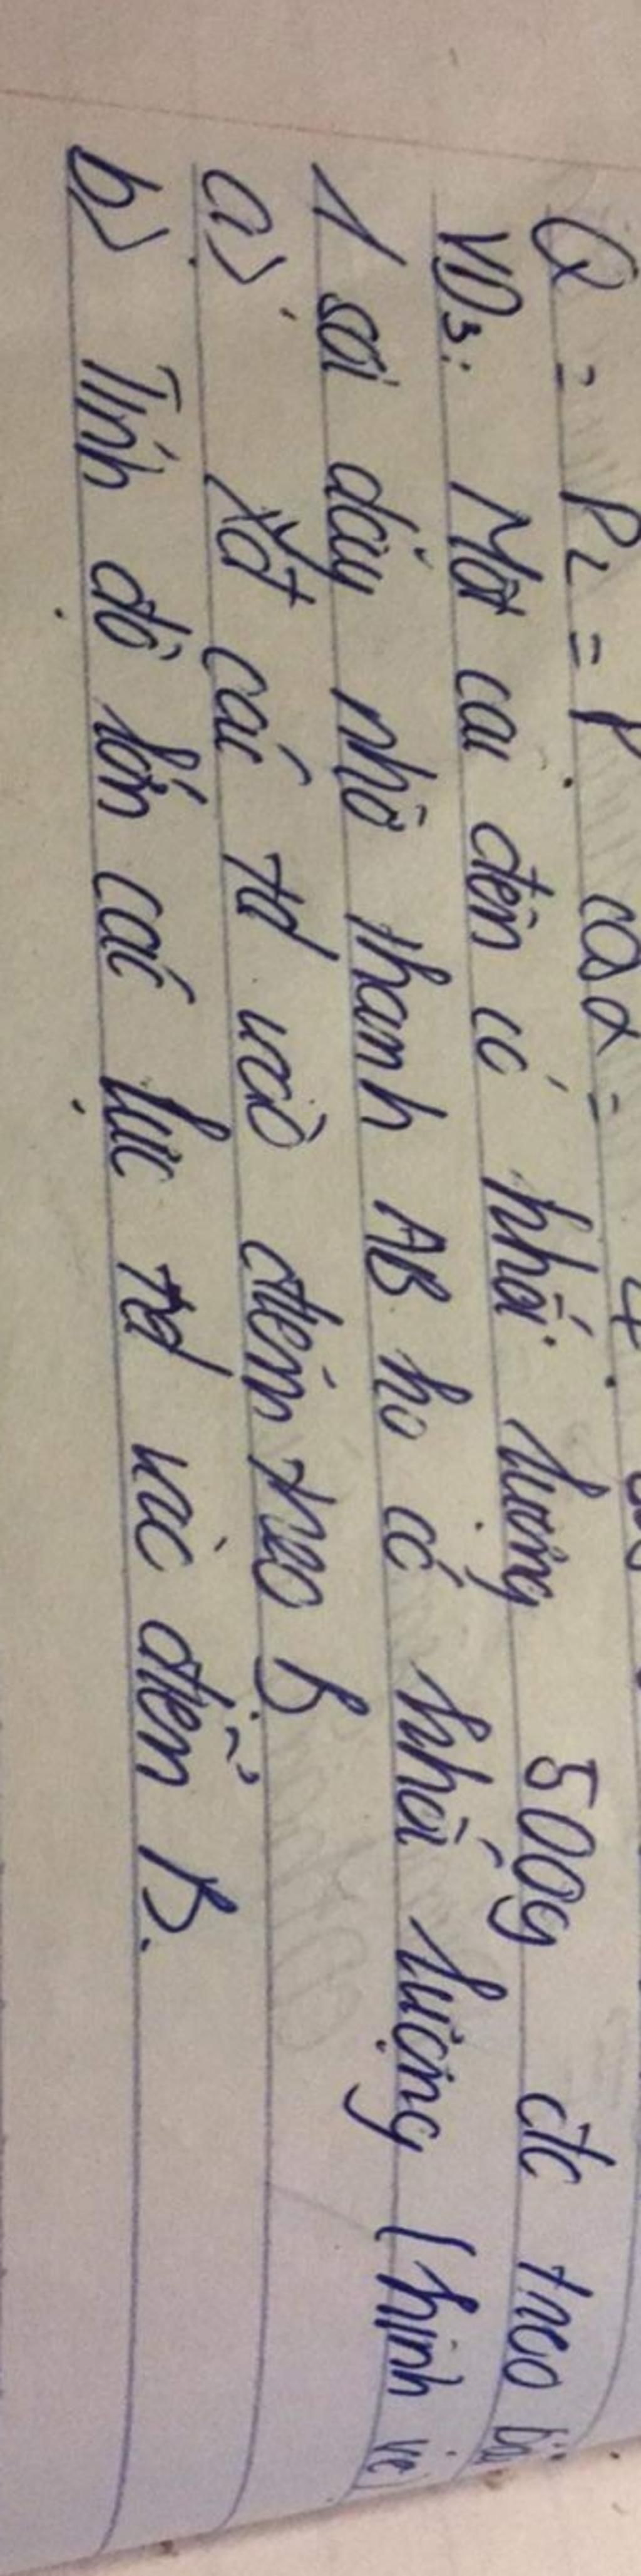 Q = P₂ = P cos α =
VD3: Một cái đèn có khối lượng 500g đc treo bởi
1 sợi dây nhờ thanh AB ko có khối lượng (hình vẽ)
a) Xđ các td vào điểm treo B
b) Tính độ lớn các lực td vào điểm B.